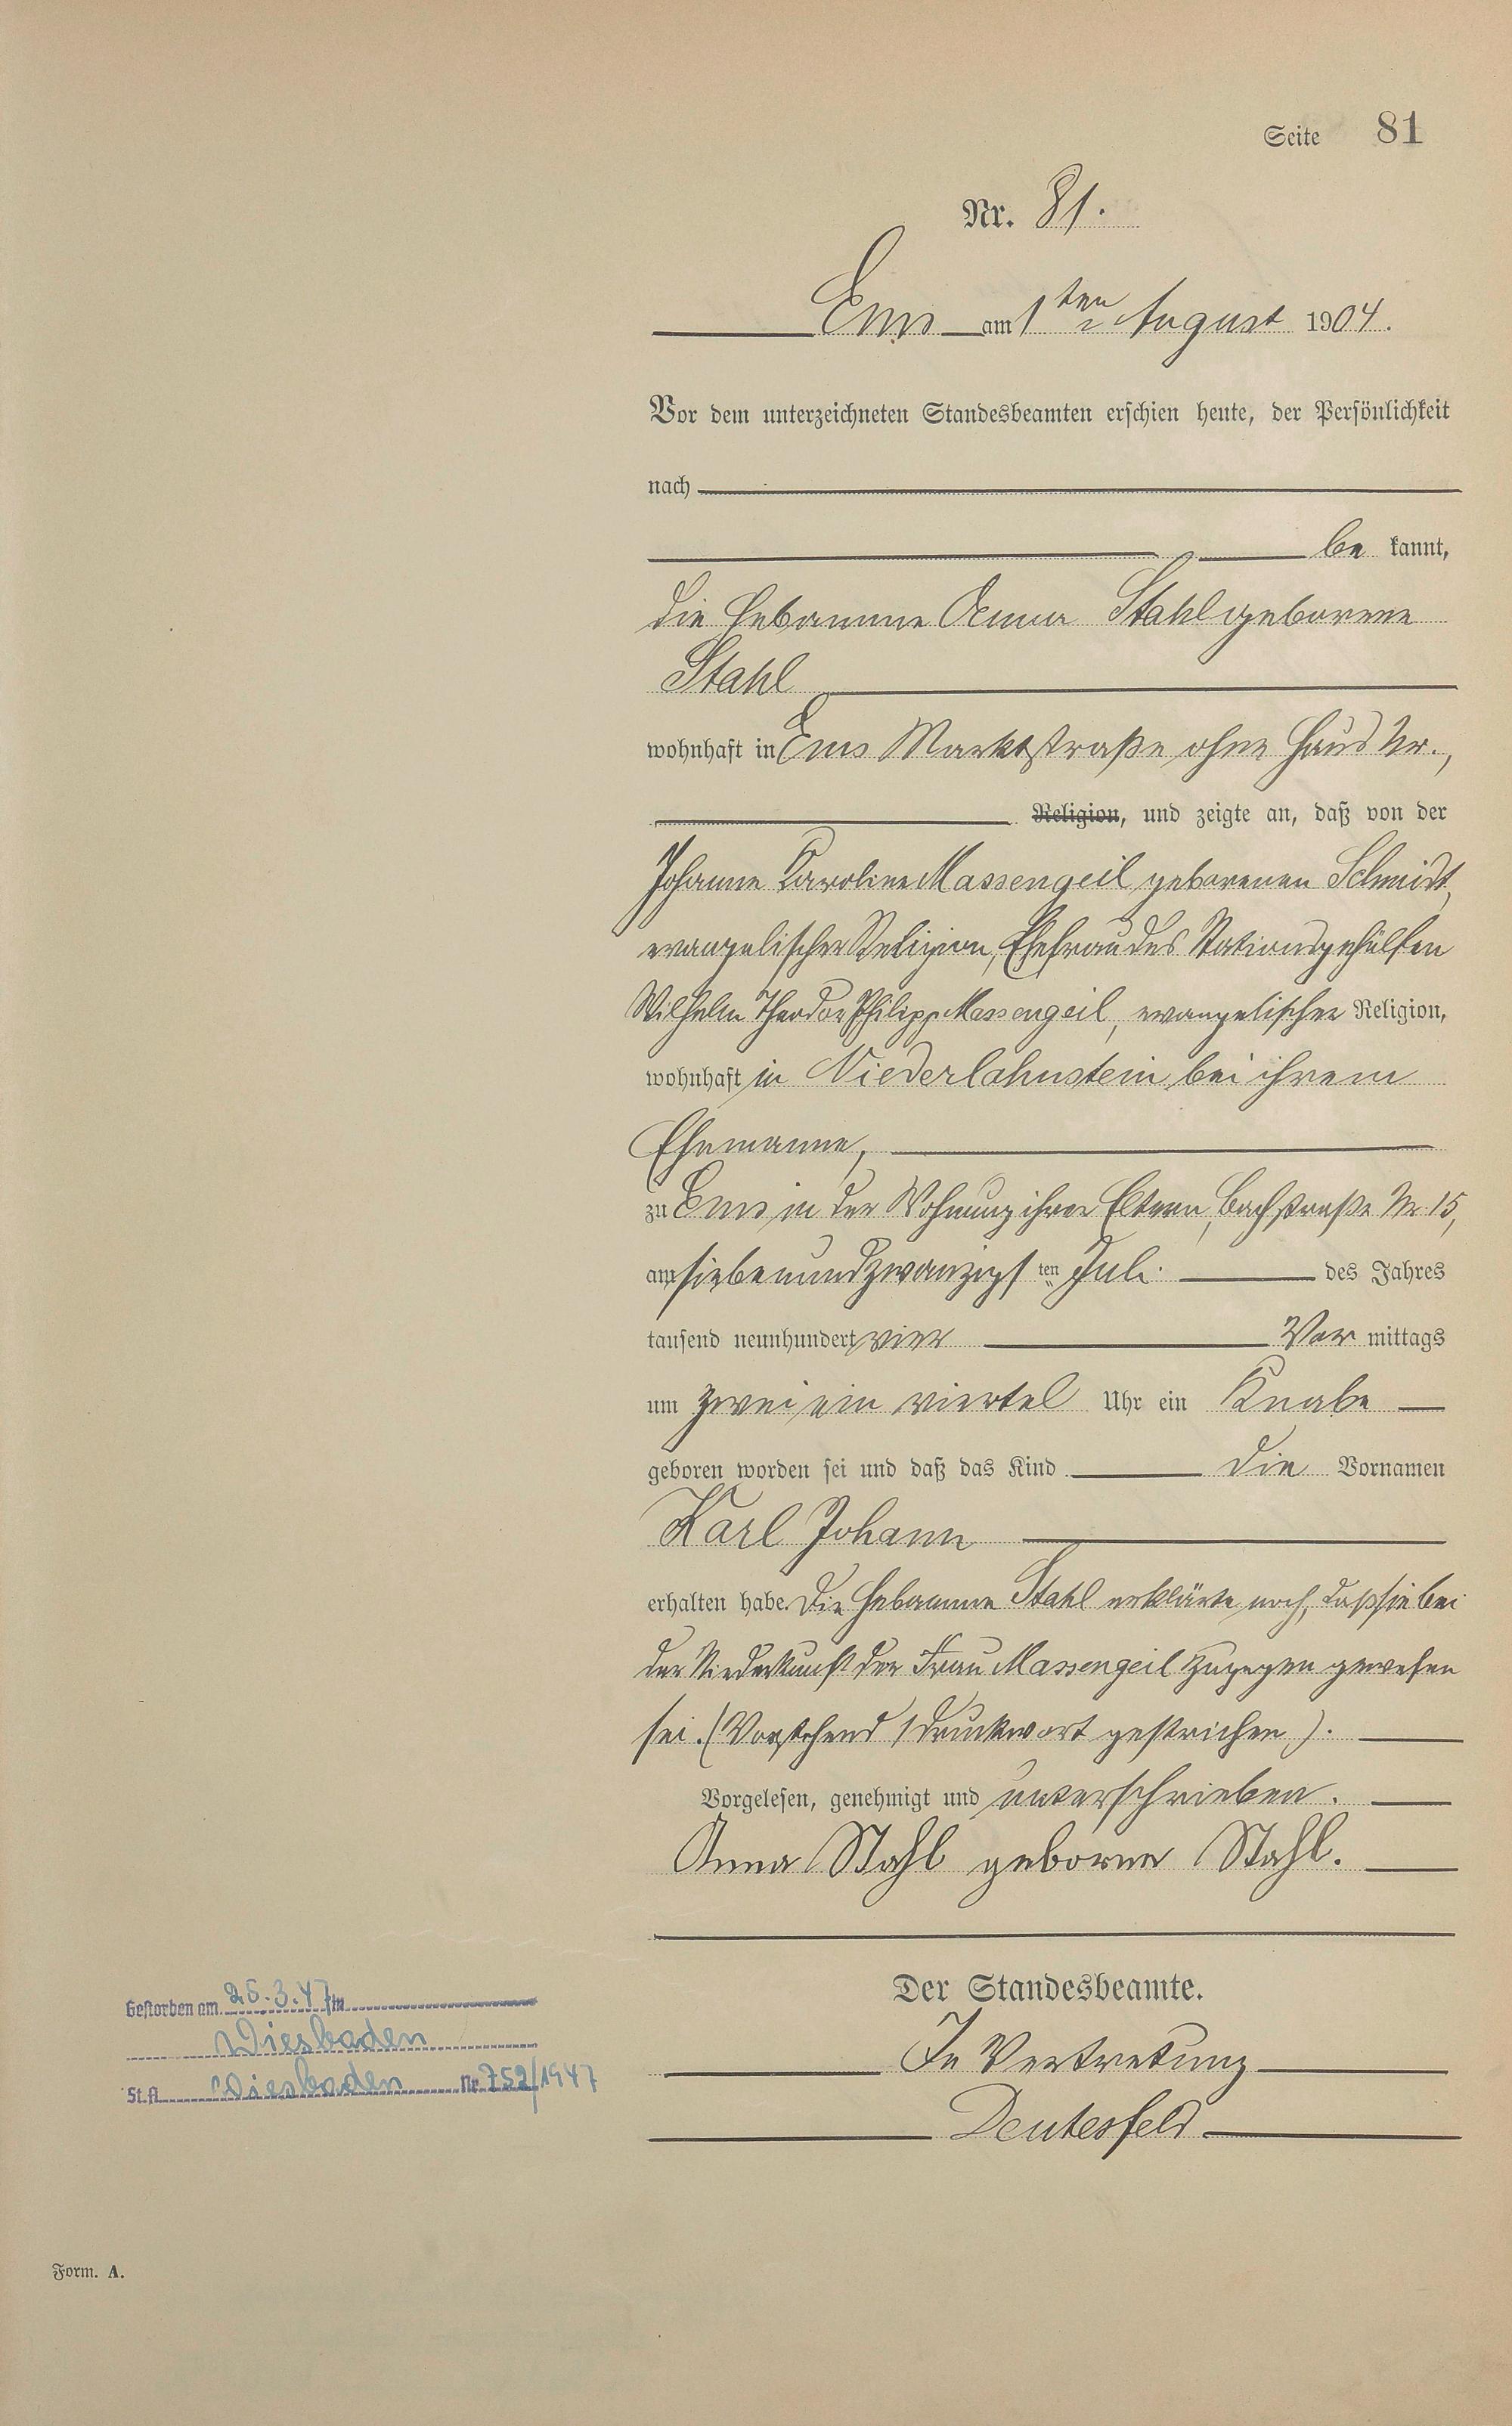 Seite 81
Nr. 81.
Ems am 1ten August 1904.
Vor dem unterzeichneten Standesbeamten erschien heute, der Persönlichkeit
nach
be kannt,
die Hebamme Anna Stahl geborene
Stahl
wohnhaft in Ems Marktstraße ohne Haus Nr.,
Religion, und zeigte an, daß von der
Johanne Karoline Massengeil geborenen Schmidt,
evangelischer Religion, Ehefrau des Stationsgehülfen
Wilhelm Theodor Philipp Massengeil, evangelischer Religion,
wohnhaft in Niederlahnstein bei ihrem
Ehemanne,
zu Ems in der Wohnung ihrer Eltern, Bachstraße Nr. 15,
am siebenundzwanzigsten Juli des Jahres
tausend neunhundert vier Vor mittags
um zwei ein viertel Uhr ein Knabe
geboren worden sei und daß das Kind die Vornamen
Karl Johann
erhalten habe. Die Hebamme Stahl erklärte noch, daß sie bei
der Niederkunft der Frau Massengeil zugegen gewesen
sei. (Vorstehend 1 Druckwort gestrichen).
Vorgelesen, genehmigt und unterschrieben.
Anna Stahl geborene Stahl.
Der Standesbeamte.
In Vertretung
Deutesfeld
Gestorben am 26.3.47 in
Wiesbaden
St.A. Wiesbaden Nr. 752/1947
Form. A.